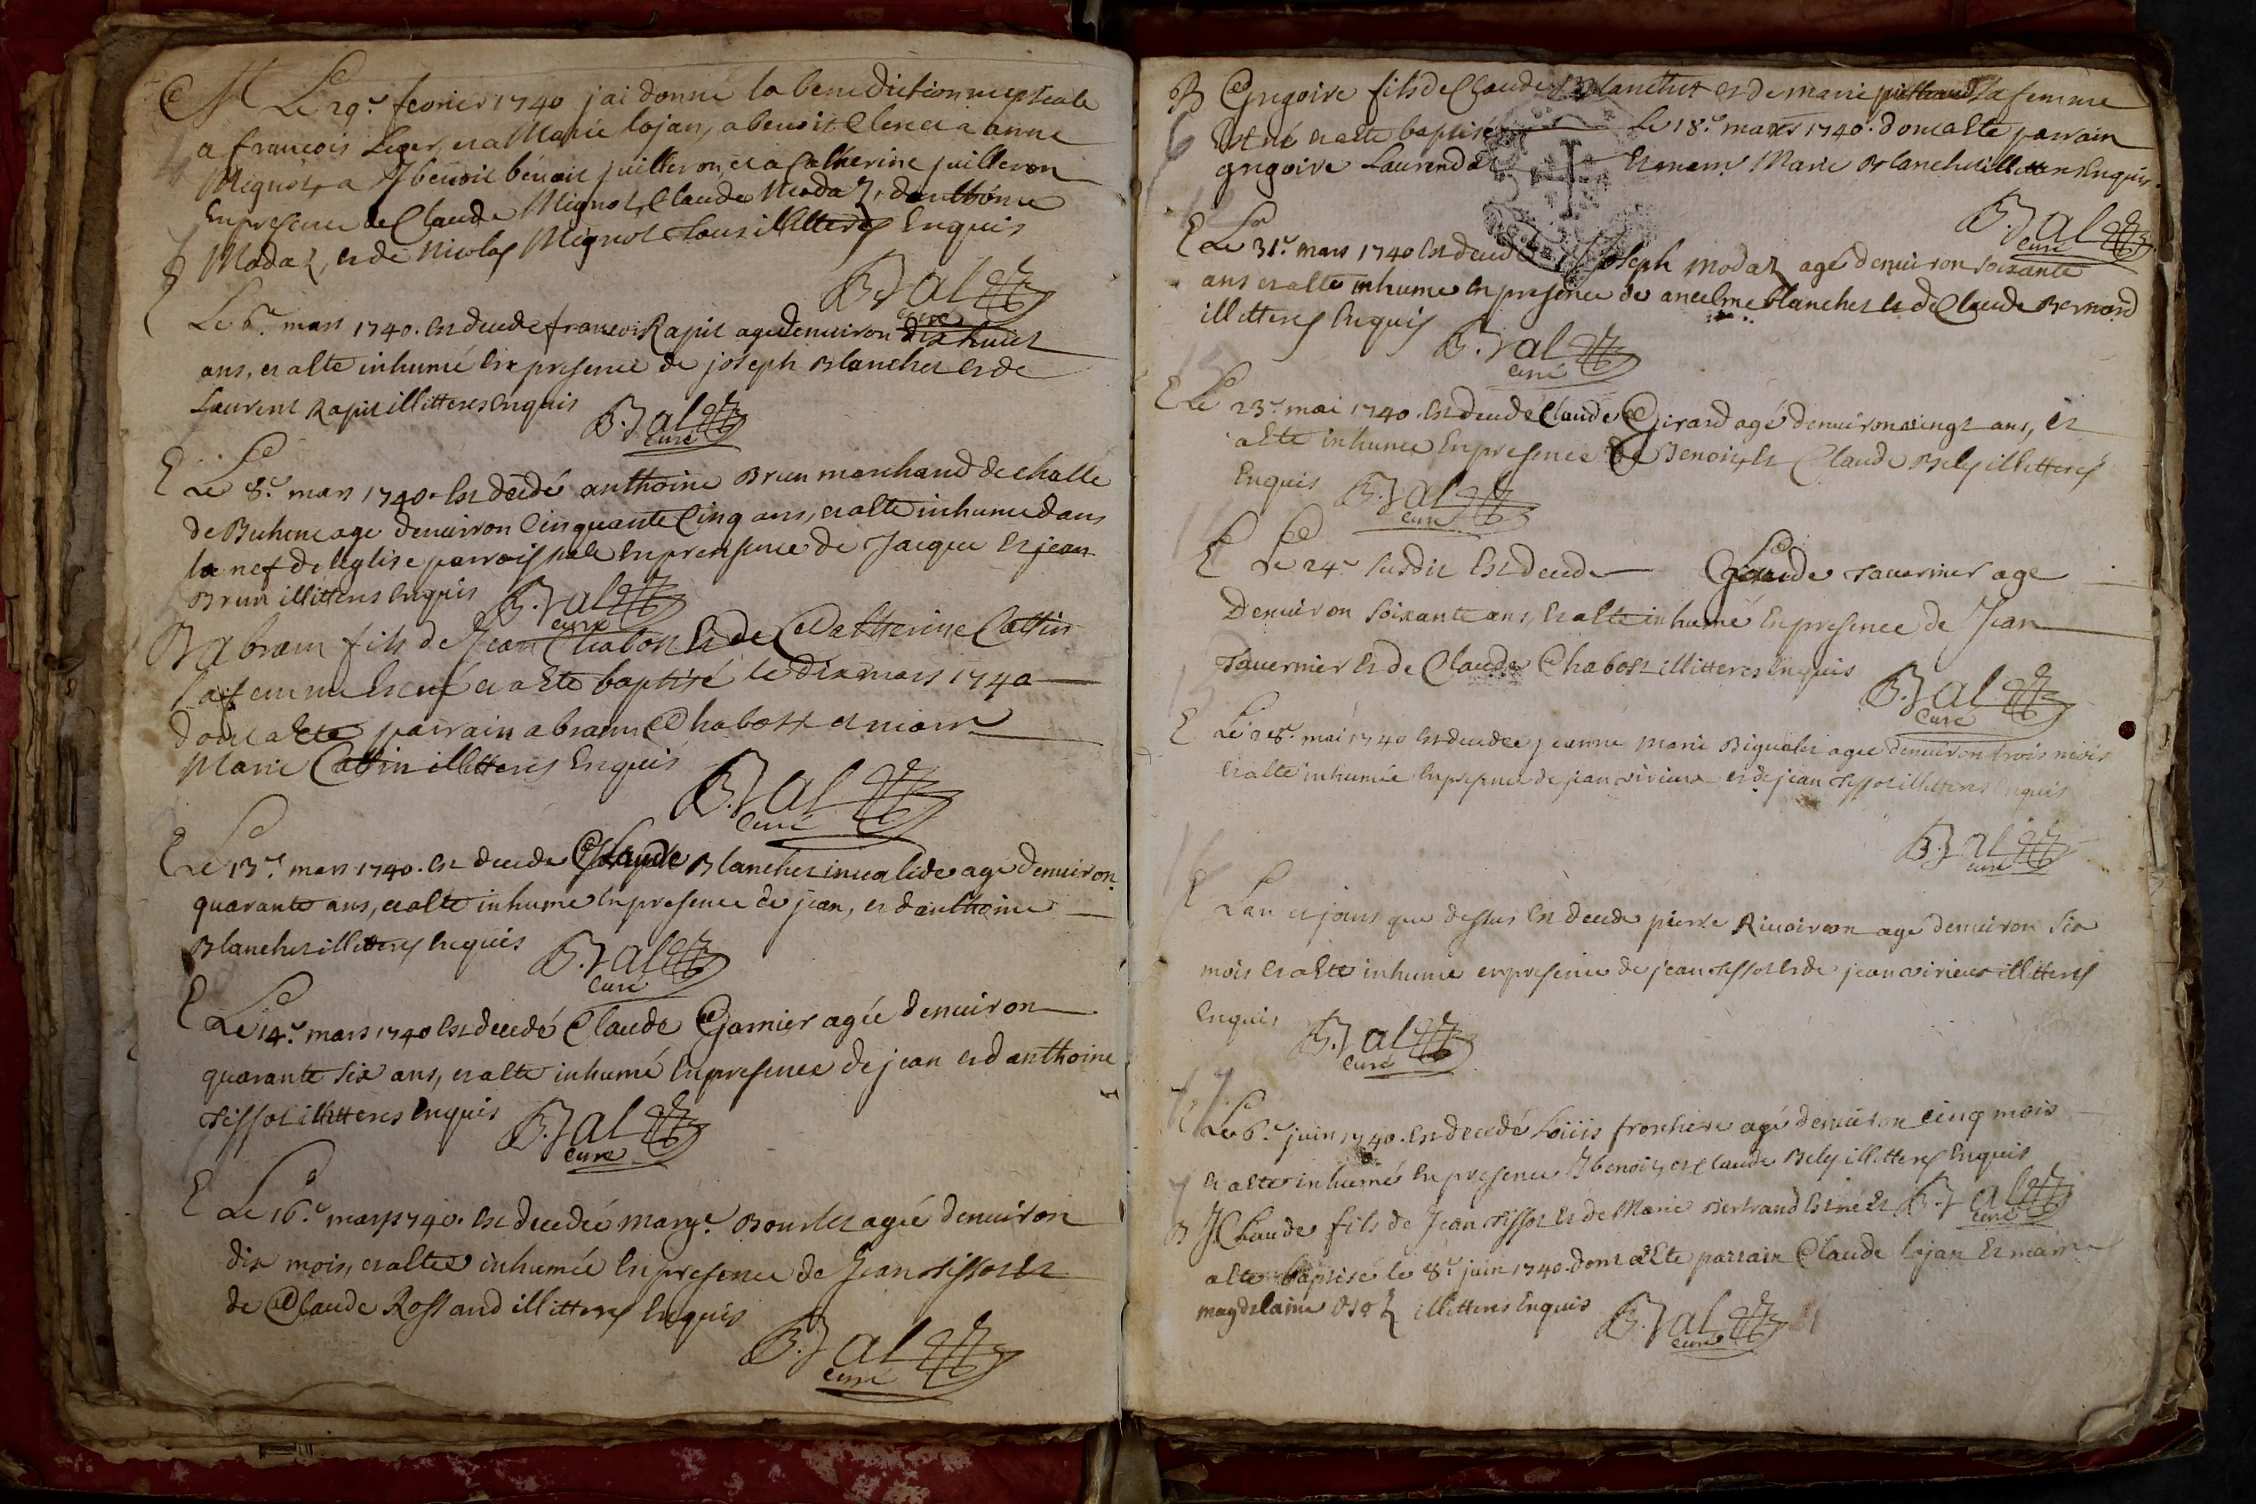 M Le 29e fevrier 1740 jai donné la benediction nuptiale
a francois Leger, et a Marie lojan, a benoit Clerc et a anne
Mignot, a benoit juilleron, et a Catherine juilleron
En presence de Claude Mignot, Claude Modaz, danthoine
Modaz, et de Nicolas Mignot tous illitteres Enquis
B. Jal
curé
E Le 6e mars 1740. Est decede francois Rapit age denuiron dix huict
ans, et a este inhumé En presence de joseph Blanchet et de
Laurent Rapit illitteres Enquis B. Jal
curé
E Le 8e mars 1740. Est decedé anthoine Brun marchand de challe
de age denuiron Cinquante Cinq ans, et a este inhume dans
la nef de leglise parroissiale En presence de Jacque Et jean
Brun illitteres Enquis B. Jal
curé
B abram fils de Jean Chabost Et de Catherine Cattin
sa femme Est né et a Este baptisé le dix mars 1740
dont a Este parrain abram Chabost et marr
Marie Cattin illitteres Enquis
B. Jal
curé
E Le 13e mars 1740. Est decede Claude Blanchet inualide age denuiron
quarante ans, et a este inhume En presence de jean, et danthoine
Blanchet illitteres Enquis B. Jal
curé
E Le 14e mars 1740 Est decedé Claude Garnier agée denuiron
quarante six ans, et a este inhumé En presence de jean et danthoine
Tissot illitteres Enquis B. Jal
curé
E Le 16e mars 1740. Est decedée Marg.e Bourlet agée denuiron
dix mois, et a estee inhumée En presence de Jean Tissot Et
de Claude Rossand illitteres Enquis
B. Jal
curé
B Gregoire fils de Claude Blanchet et de marie sa femme
Est né et a este baptisé Le 18e mars 1740. dont a este parrain
gregoire Laurendaz Et marr Marie Blanchet illitteres Enquis
B. Jal
curé
E Le 31e mars 1740 Est decede joseph modaz agé denuiron soixante
ans et a este inhume En presence de ancelme blanchet Et de Claude Bernard
illitteres Enquis B. Jal
curé
E Le 23e mai 1740. Est decedé Claude Girard agé denuiron vingt ans, et
a Este inhume En presence de Benoit, Et Claude Bely illitteres
Enquis B. Jal
curé
E Le 24e susdit Est decede Claude Tauernier age
Denuiron soixante ans, et a este inhumé En presence de Jean
Tauernier Et de Claude Chabost illitteres Enquis B. Jal
curé
E Le 28e mai 1740 Est decedee jeanne Marie Biguelet agee denuiron trois mois
et a este inhumée En presence de jean virieux et de jean Tissot illitteres Enquis
B. Jal
curé
E L an et jours que dessus Est decede pierre Riuoiron agé denuiron six
mois et a Este inhume en presence de jean Tissot et de jean virieux illitteres
Enquis B. Jal
curé
E Le 6e juin 1740. Est decedé Loüis frontiere agé denuiron cinq mois
et a este inhumé En presence benoit, et Claude Bely illitteres Enquis
B Claude fils de Jean Tissot Et de Marie Bertrand Est né Et B. Jal
curé
a Este baptisé le 8e juin 1740. dont a Este parrain Claude lojan Et marr
magdelaine illitteres Enquis B. Jal
curé